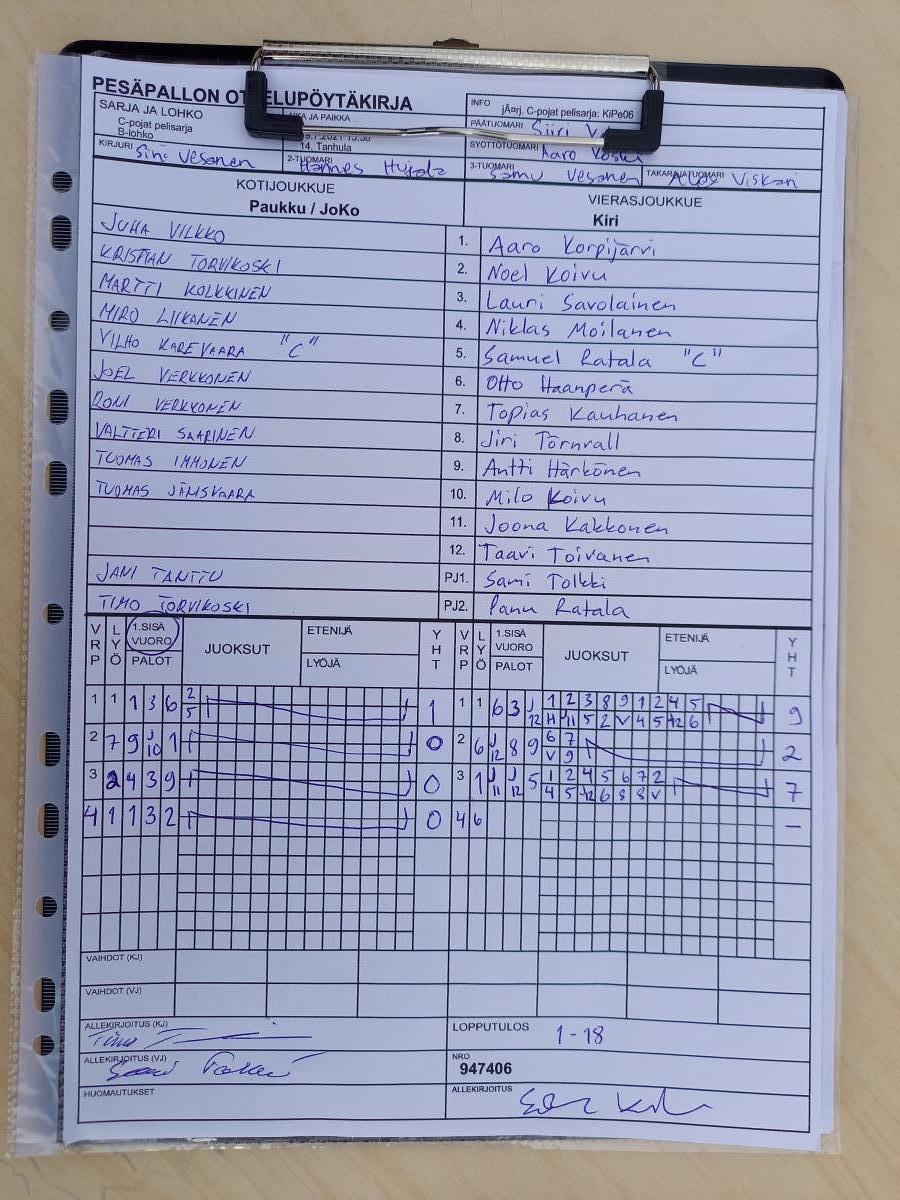 PESÄPALLON OTTELUPÖYTÄKIRJA
SARJA JA LOHKO
C-pojat pelisarja
B-lohko
AIKA JA PAIKKA
14, Tanhula
INFO jÃ¤rj. C-pojat pelisarja: KiPe06
PÄÄTUOMARI Siiri
SYÖTTÖTUOMARI Aaro
KIRJURI Sini Vesanen
2-TUOMARI Hannes Hujala
3-TUOMARI Samu Vesanen
TAKARAJATUOMARI Viskari
KOTIJOUKKUE
Paukku / JoKo
VIERASJOUKKUE
Kiri
JUHA VILKKO 1. Aaro Korpijärvi
KRISTIAN TORVIKOSKI 2. Noel Koivu
MARTTI KOLKKINEN 3. Lauri Savolainen
MIRO LIIKANEN 4. Niklas Moilanen
VILHO KAREVAARA "C" 5. Samuel Ratala "C"
JOEL VERKKONEN 6. Otto Haanperä
RONI VERKKONEN 7. Topias Kauhanen
VALTTERI SAARINEN 8. Jiri Törnvall
TUOMAS IMMONEN 9. Antti Härkönen
TUOMAS JÄNISVAARA 10. Milo Koivu
11. Joona Kakkonen
12. Taavi Toivanen
JANI TANTTU PJ1. Sami Tolkki
TIMO TORVIKOSKI PJ2. Panu Ratala
VRP LYÖ 1.SISÄ VUORO PALOT JUOKSUT ETENIJÄ LYÖJÄ YHT VRP LYÖ 1.SISÄ VUORO PALOT JUOKSUT ETENIJÄ LYÖJÄ YHT
1 1 1 3 6 2 1 1 1 6 3 J 1 2 3 8 9 1 2 4 5 9
5 12 H J11 5 2 V 4 5 J12 6
2 7 9 J 1 0 2 6 J 8 9 6 7 2
10 12 V 9
3 2 4 3 9 0 3 1 J J 5 1 2 4 5 6 7 2 7
11 12 4 5 J12 6 8 8 V
4 1 1 3 2 0 4 6 –
VAIHDOT (KJ)
VAIHDOT (VJ)
ALLEKIRJOITUS (KJ)
LOPPUTULOS 1-18
ALLEKIRJOITUS (VJ)
NRO
947406
HUOMAUTUKSET
ALLEKIRJOITUS